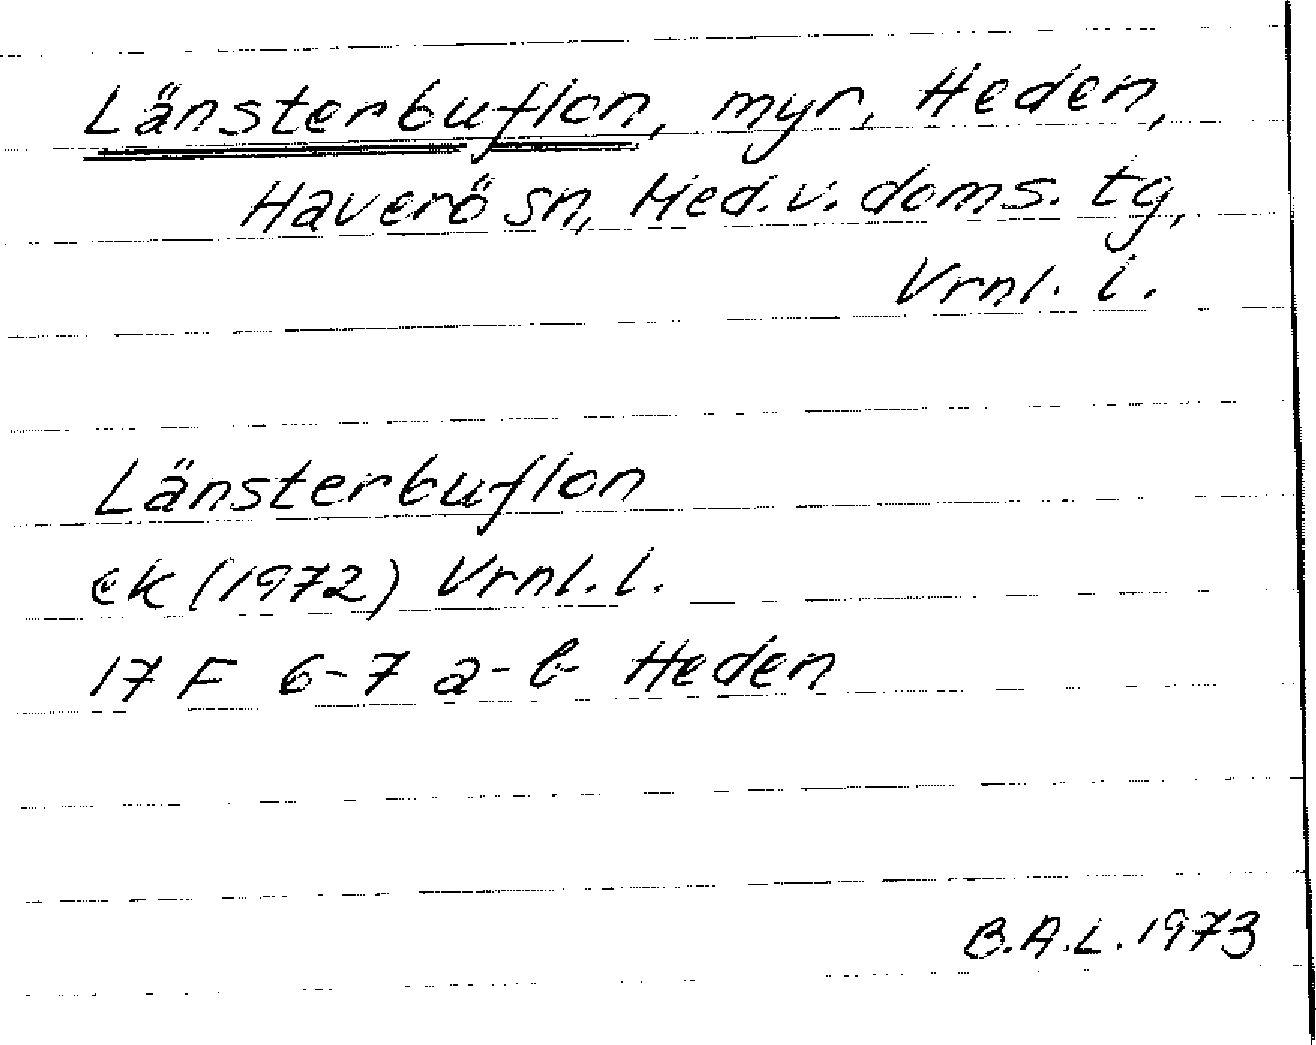 Länsterbuflon, myr, Heden,
Haverö sn, Med.v. doms. tg,
Vrnl. l.
Länsterbuflon
ek (1972) Vrnl. l.
17 F 6-7 a-b Heden
B.A.L. 1973